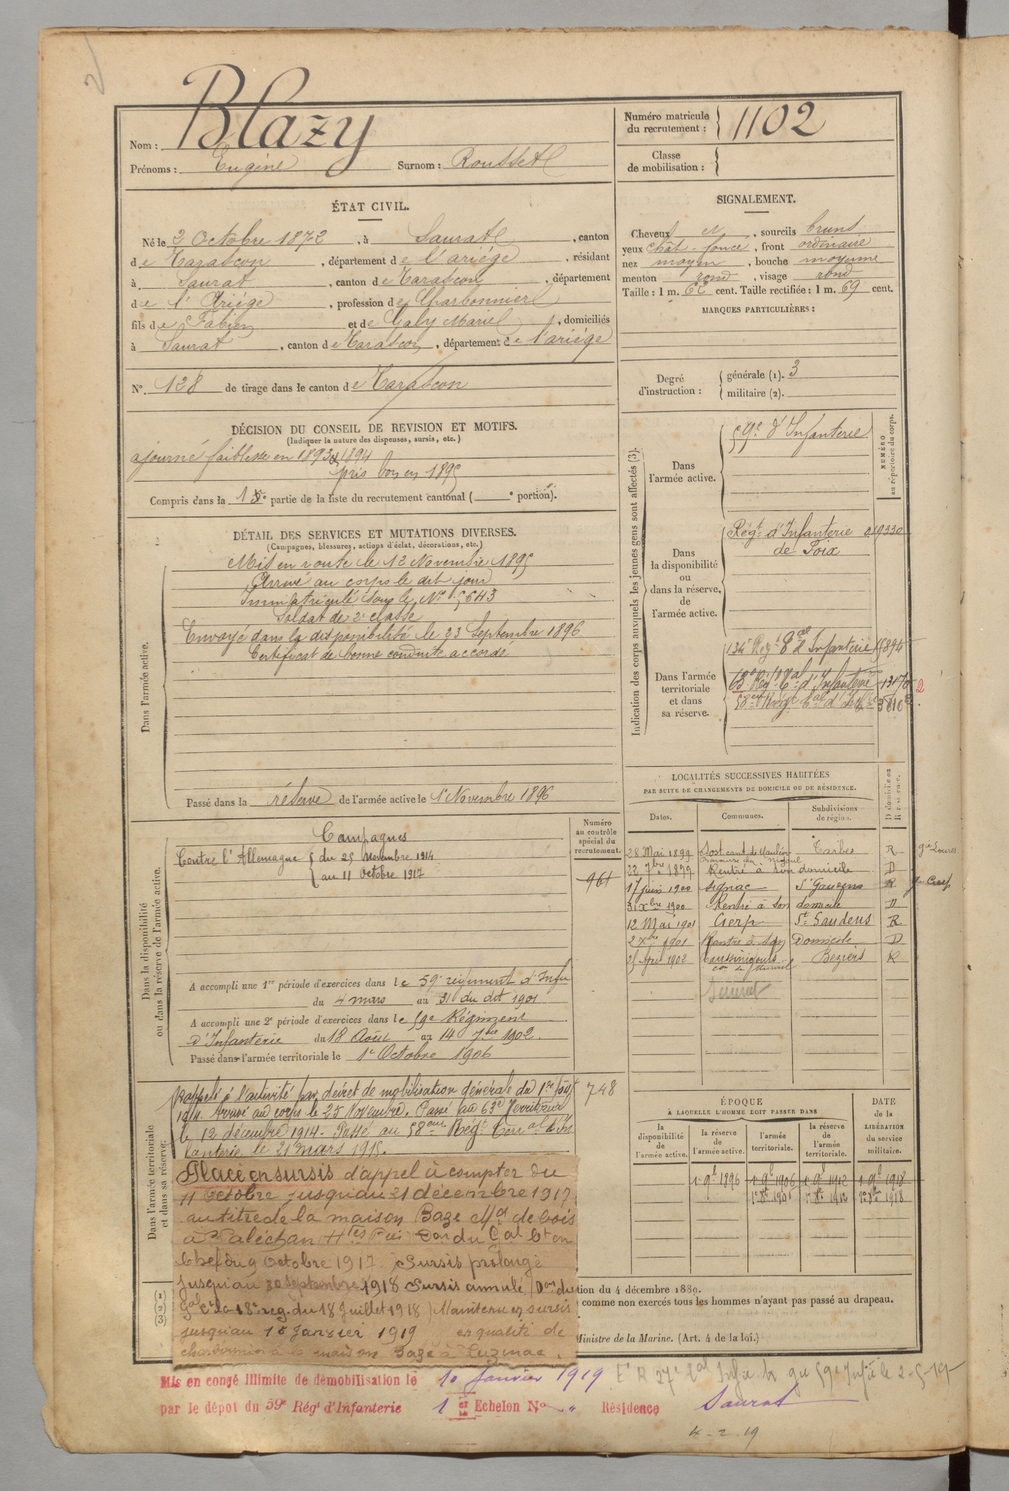 Blazy
Nom :
Prénoms : Eugène Surnom : Rousset
Numéro matricule du recrutement : 1102
Classe de mobilisation :
ÉTAT CIVIL.
Né le 2 Octobre 1872, à Saurat, canton
de Tarascon, département de l'ariège, résidant
à Saurat, canton de Tarascon, département
de l'Ariège, profession de Charbonnier
fils de Fabien et de Galy Marie, domiciliés
à Saurat, canton de Tarascon, département de l'ariège
N° 128 de tirage dans le canton de Tarascon
SIGNALEMENT.
Cheveux et, sourcils bruns
yeux chât-foncé, front ordinaire
nez moyen, bouche moyenne
menton rond, visage rond
Taille : 1 m. cent. Taille rectifiée : 1 m. 69 cent.
MARQUES PARTICULIÈRES :
Degré d'instruction : générale (1). 3
militaire (2).
DÉCISION DU CONSEIL DE REVISION ET MOTIFS.
(Indiquer la nature des dispenses, sursis, etc.)
ajourné faiblesse en 1893 & 1894
pris bon en 1895
Compris dans la 1e partie de la liste du recrutement cantonal ( e portion).
DÉTAIL DES SERVICES ET MUTATIONS DIVERSES.
(Campagnes, blessures, actions d'éclat, décorations, etc.)
Dans l'armée active.
Mis en route le 12 Novembre 1895
Arrivé au corps le dit jour
Immatriculé sous le N° 5643
Soldat de 2e classe
Envoyé dans la disponibilité le 23 Septembre 1896
Certificat de bonne conduite accordé
Passé dans la réserve de l'armée active le 1er Novembre 1896
Indication des corps auxquels les jeunes gens sont affectés (3).
NUMÉRO au répertoire du corps.
Dans l'armée active.
59e d'Infanterie
Dans la disponibilité ou dans la réserve de l'armée active.
Régt d'Infanterie 09330
de Foix
Dans l'armée territoriale et dans sa réserve.
134e Régt d'Infanterie
63e Régt Tal d'Infanterie
58e Régt Tal d'Inf
Dans la disponibilité ou dans la réserve de l'armée active.
Numéro au contrôle spécial du recrutement.
961
Campagnes
Contre l'Allemagne du 25 Novembre 1914
au 11 Octobre 1917
A accompli une 1re période d'exercices dans le 59e régiment d'Infie
du 4 mars au 31 du dit 1901
A accompli une 2e période d'exercices dans le 59e Régiment
d'Infanterie du 18 Août au 14 7bre 1902.
Passé dans l'armée territoriale le 1er Octobre 1906
LOCALITÉS SUCCESSIVES HABITÉES
PAR SUITE DE CHANGEMENTS DE DOMICILE OU DE RÉSIDENCE.
Dates. Communes. Subdivisions de région. D domicile ou R résidence.
28 Mai 1899 Tarbes R
22 7bre 1899 Rentré à son domicile D
17 juin 1900 Signac St Gaudens R
31 Xbre 1900 Rentré à son domicile D
12 Mai 1901 Cierp St Gaudens R
2 Xbre 1901 Rentré à son Domicile D
Béziers R
Saurat
Dans l'armée territoriale et dans sa réserve.
748
Rappelé à l'activité par décret de mobilisation générale du 1er août
1914. Arrivé au corps le 25 Novembre. Passé au 63e Territorial
le 12 décembre 1914. Passé au 58ème Régt Terral d'In
fanterie le 21 mars 1915.
Placé en sursis d'appel à compter du
11 Octobre jusqu'au 31 décembre 1917
au titre de la maison Baze Md de bois
à Valéchan Htes Pées
Octobre 1917. Sursis prolongé
jusqu'au 30 Septembre 1918 Sursis annulé
18e reg. du 18 Juillet 1918 Maintenu en sursis
jusqu'au 15 Janvier 1919 en qualité de
charbonnier à la maison Baze à Luzenac.
ÉPOQUE
À LAQUELLE L'HOMME DOIT PASSER DANS
DATE de la LIBÉRATION du service militaire.
la disponibilité de l'armée active. la réserve de l'armée active. l'armée territoriale. la réserve de l'armée territoriale.
1er 9bre 1896 1er 9bre 1906 1er 9bre 1912 1er 9bre 1918
(1)
(2)
(3)
tion du 4 décembre 1889.
comme non exercés tous les hommes n'ayant pas passé au drapeau.
Ministre de la Marine. (Art. 4 de la loi.)
Mis en congé illimité de démobilisation le 10 Janvier 1919
par le dépot du 59e Régt d'Infanterie 1er Echelon N° " Résidence Saurat
4-2-19